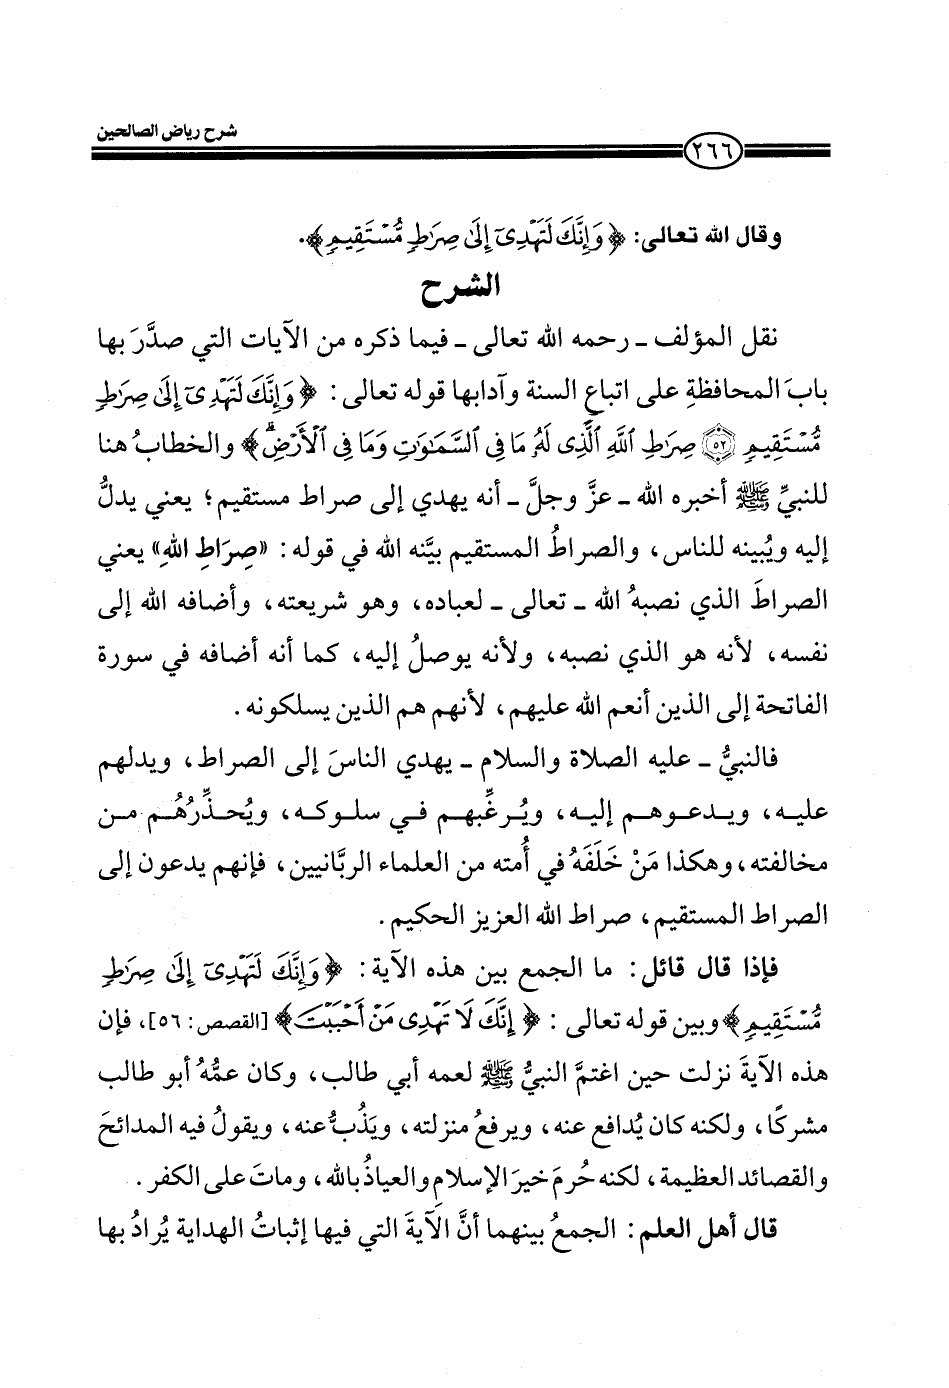 شرح رياض الصالحين
٢٦٦
وقال الله تعالى: ﴿وَإِنَّكَ لَتَهْدِىٓ إِلَىٰ صِرَٰطٍ مُّسْتَقِيمٍ﴾.
الشرح
نقل المؤلف ـ رحمه الله تعالى ـ فيما ذكره من الآيات التي صدَّرَ بها
بابَ المحافظةِ على اتباعِ السنة وآدابها قوله تعالى: ﴿وَإِنَّكَ لَتَهْدِىٓ إِلَىٰ صِرَٰطٍ
مُّسْتَقِيمٍ ۝٥٢ صِرَٰطِ ٱللَّهِ ٱلَّذِى لَهُۥ مَا فِى ٱلسَّمَٰوَٰتِ وَمَا فِى ٱلْأَرْضِۗ﴾ والخطابُ هنا
للنبيِّ ﷺ أخبره الله ـ عزَّ وجلَّ ـ أنه يهدي إلى صراط مستقيم؛ يعني يدلُّ
إليه ويُبينه للناس، والصراطُ المستقيم بيَّنه الله في قوله: «صِرَاطِ اللهِ» يعني
الصراطَ الذي نصبهُ الله ـ تعالى ـ لعباده، وهو شريعته، وأضافه الله إلى
نفسه، لأنه هو الذي نصبه، ولأنه يوصلُ إليه، كما أنه أضافه في سورة
الفاتحة إلى الذين أنعم الله عليهم، لأنهم هم الذين يسلكونه.
فالنبيُّ ـ عليه الصلاة والسلام ـ يهدي الناسَ إلى الصراط، ويدلهم
عليه، ويدعوهم إليه، ويُرغِّبهم في سلوكه، ويُحذِّرُهُم من
مخالفته، وهكذا مَنْ خَلَفَهُ في أُمته من العلماء الربَّانيين، فإنهم يدعون إلى
الصراط المستقيم، صراط الله العزيز الحكيم.
فإذا قال قائل: ما الجمع بين هذه الآية: ﴿وَإِنَّكَ لَتَهْدِىٓ إِلَىٰ صِرَٰطٍ
مُّسْتَقِيمٍ﴾ وبين قوله تعالى: ﴿إِنَّكَ لَا تَهْدِى مَنْ أَحْبَبْتَ﴾ [القصص: ٥٦]، فإن
هذه الآيةَ نزلت حين اغتمَّ النبيُّ ﷺ لعمه أبي طالب، وكان عمُّهُ أبو طالب
مشركًا، ولكنه كان يُدافع عنه، ويرفعُ منزلته، ويَذُبُّ عنه، ويقولُ فيه المدائحَ
والقصائد العظيمة، لكنه حُرمَ خيرَ الإسلامِ والعياذُ بالله، وماتَ على الكفر.
قال أهل العلم: الجمعُ بينهما أنَّ الآيةَ التي فيها إثباتُ الهداية يُرادُ بها